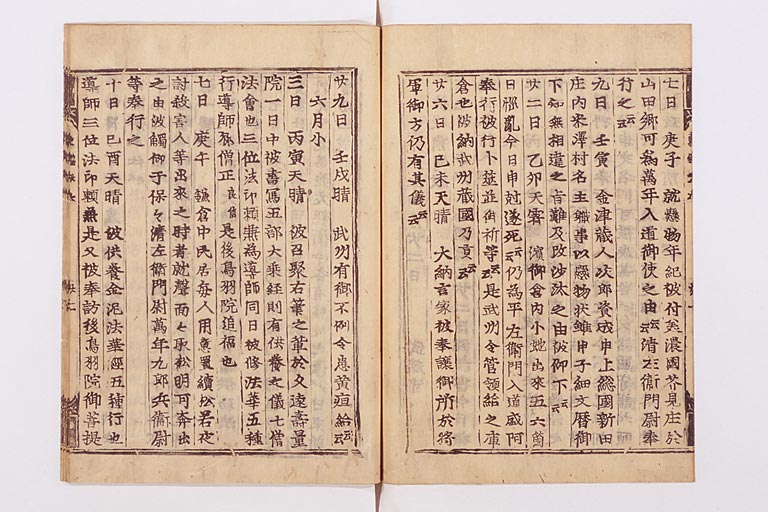 七日 庚子 就懸物年紀被付美濃國芥見庄於
山田郷可為萬年入道御使之由云云清左衛門尉奉
行之云云
九日 壬寅 金津藏人次郎資成申上総國新田
庄内米澤村名主職事以懸物状雖申子細文暦御
下知無相違之旨難及改沙汰之由被仰下云云
廿二日 乙卯天霽 濱御倉内小蛇出來五六箇
日 今日申尅遂死云云仍為平左衛門入道盛阿
奉行被行卜筮並御祈等云云是武州令管領給之庫
倉也被納武州藏國乃貢云云
廿六日 己未天晴 大納言家被奉譲御所於将
軍御方仍有其儀云云
廿九日 壬戌晴 武州有御不例令患黄疸給云云
六月小
三日 丙寅天晴 被召聚右筆之輩於久遠壽量
院一日中被書寫五部大乗経則有供養之儀七僧
法會也三位法印頼兼為導師同日被修法華五種
行導師 僧正良信是後鳥羽院追福也
七日 庚午 鎌倉中民居毎人用意置續松若夜
討殺害人等出來之時者就聲面々取松明可奔出
之由被觸仰于保々清左衛門尉萬年九郎兵衛尉
等奉行之
十日 己酉天晴 被供養金泥法華經五種行也
導師三位法印頼兼是又被奉訪後鳥羽院御菩提